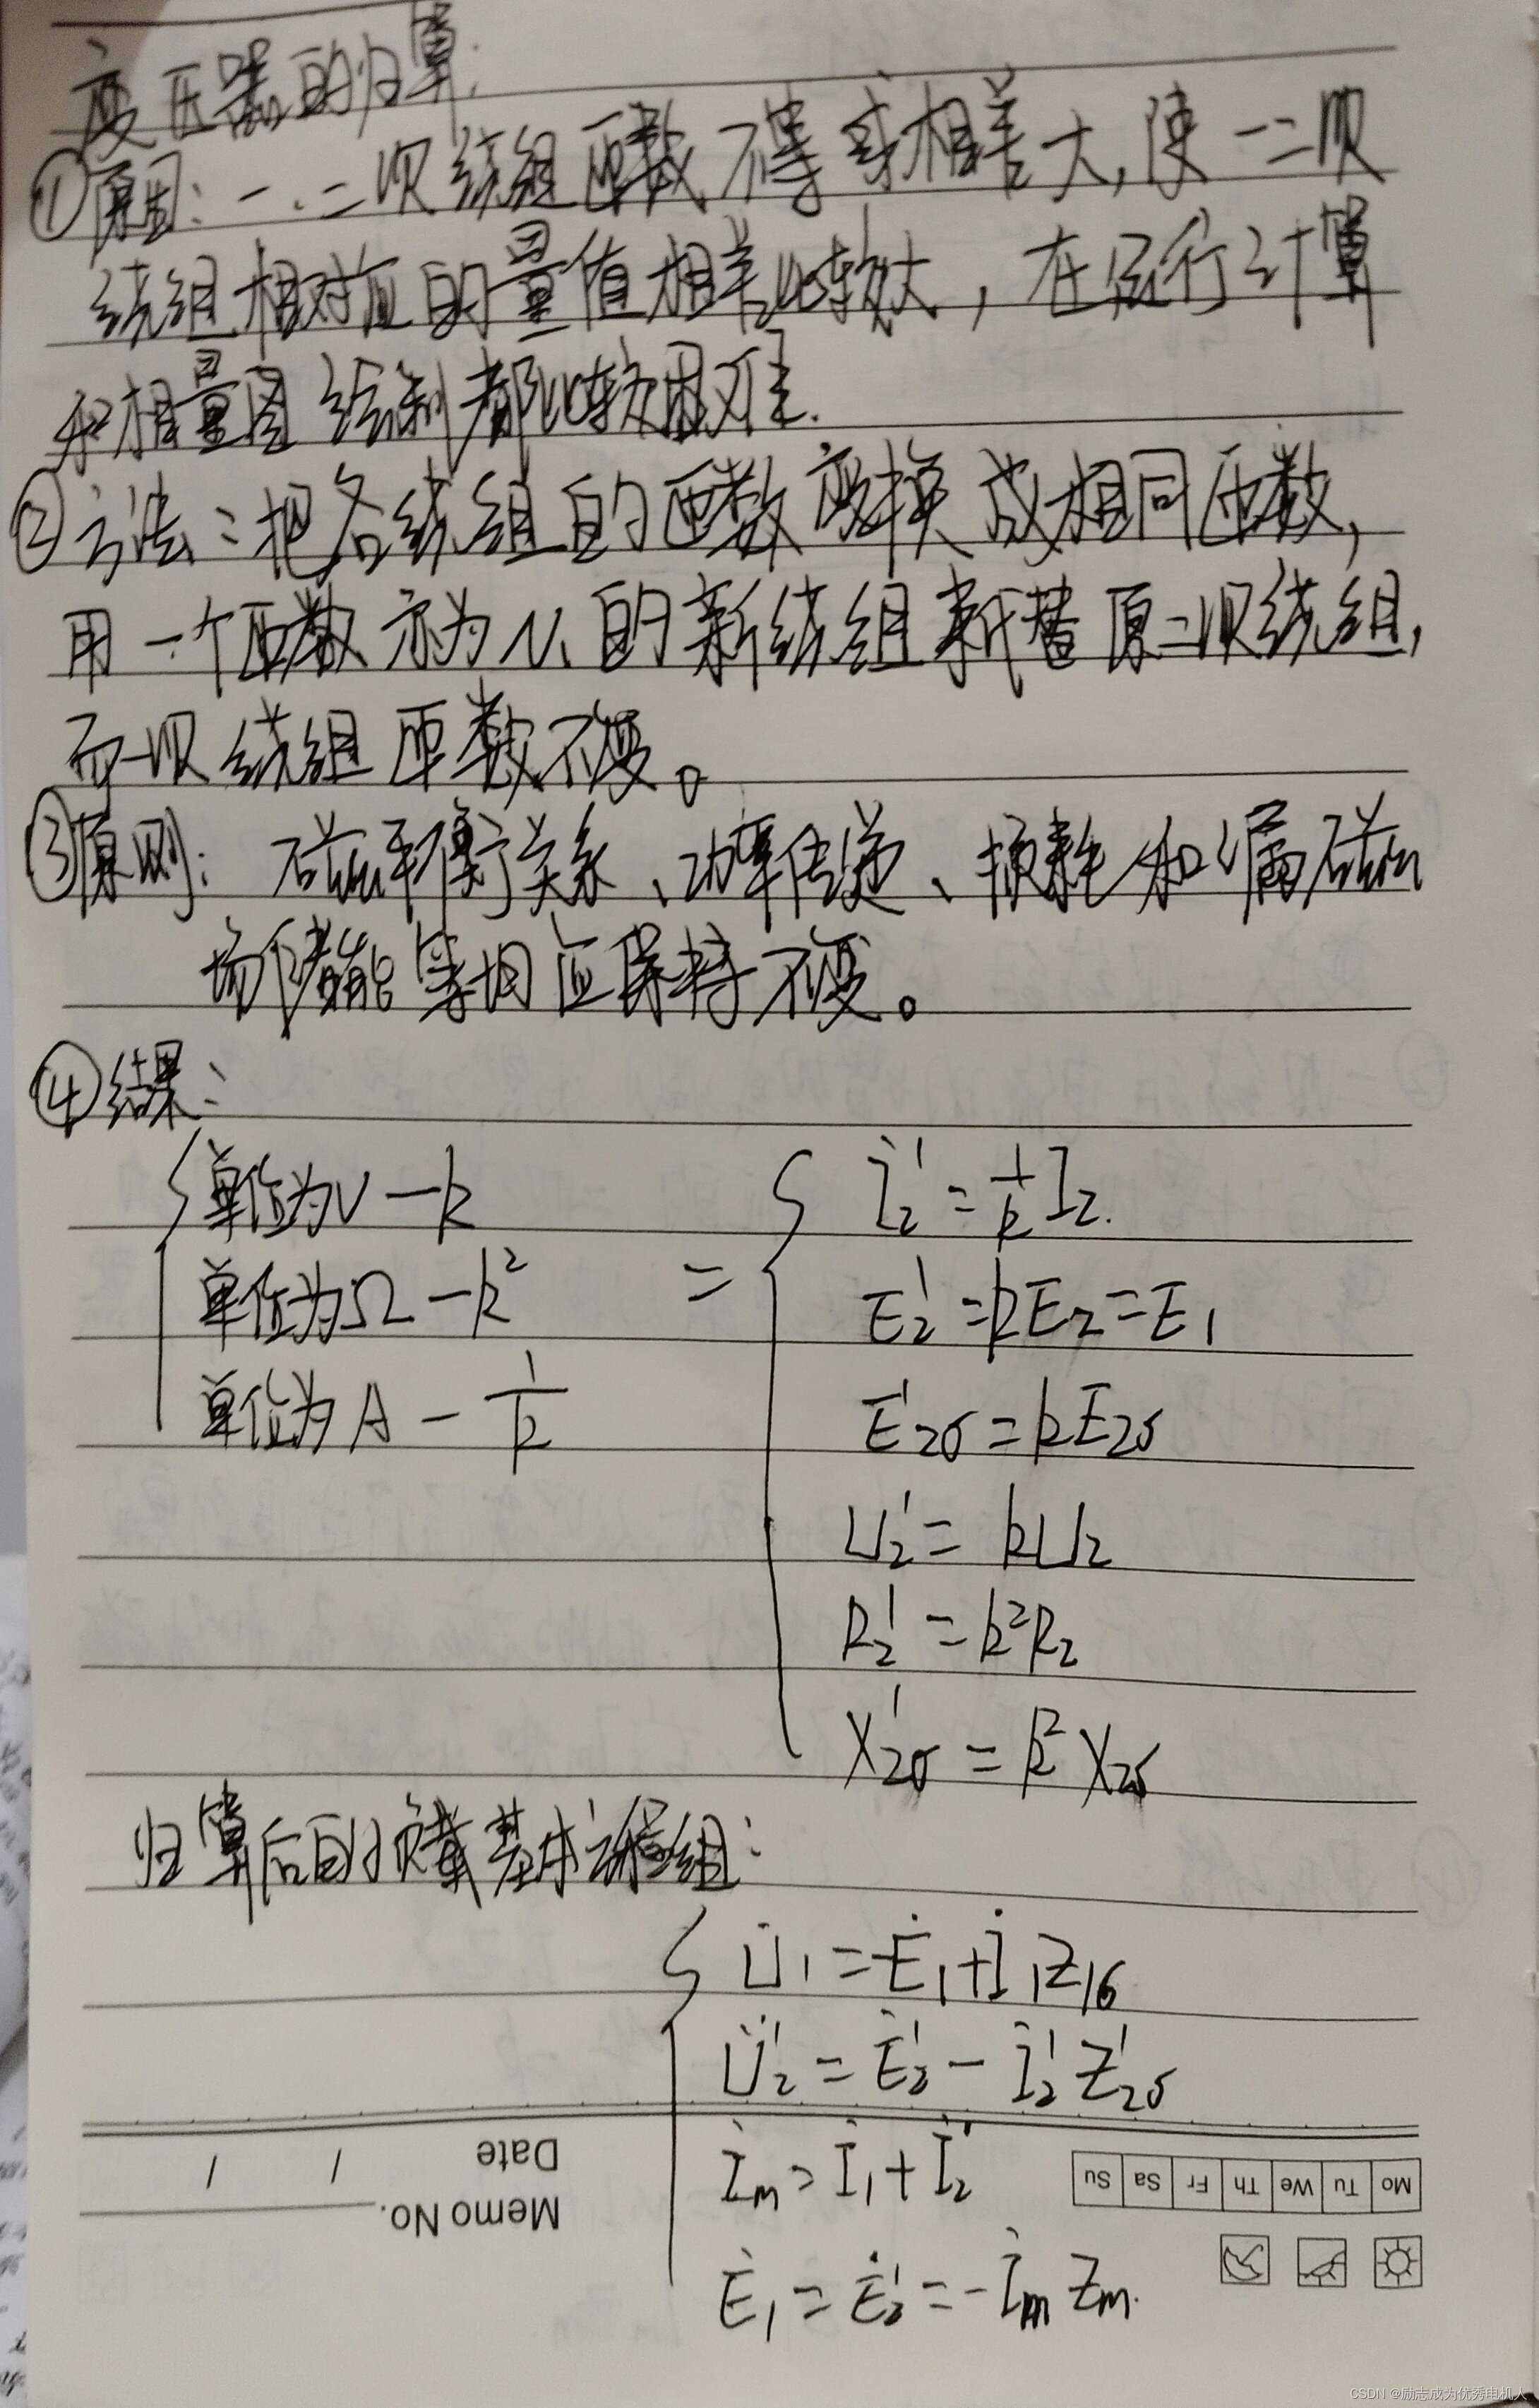 变压器的归算:
①原因:一.二次绕组匝数不等或相差大,使一二次
绕组相对应的量值相差比较大,在运行计算
和相量图绘制都比较困难.
②方法:把各绕组的匝数变换成相同匝数,
用一个匝数亦为N₁的新绕组来代替原二次绕组,
而一次绕组匝数不变。
③原则:磁动平衡关系、功率传递、损耗和漏磁
场储能等均应保持不变。
④结果:
单位为V—k
单位为Ω—k²
单位为A—1/k
=
İ₂′=1/k I₂.
E₂′=kE₂=E₁
E′₂σ=kE₂σ
U₂′=kU₂
R₂′=k²R₂
X′₂σ=k²X₂σ
归算后的负载基本方程组:
U̇₁=-Ė₁+İ₁Z₁σ
U̇₂′=Ė₂′-İ₂′Z′₂σ
İm=İ₁+İ₂′
Ė₁=Ė₂′=-İmZm.
Memo No.
Date / /
Mo Tu We Th Fr Sa Su
CSDN @励志成为优秀电机人